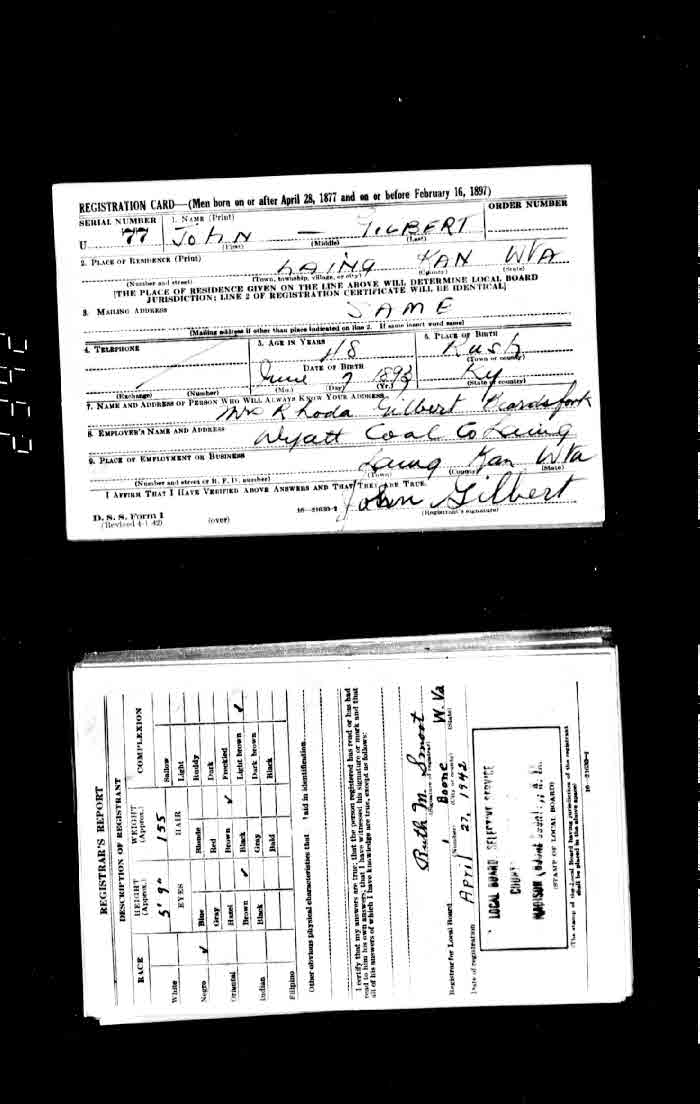 REGISTRATION CARD—(Men born on or after April 28, 1877 and on or before February 16, 1897)
SERIAL NUMBER 1. NAME (Print) ORDER NUMBER
U 77 JOHN — GILBERT
(First) (Middle) (Last)
2. PLACE OF RESIDENCE (Print)
LAING KAN WVA
(Number and street) (Town, township, village, or city) (County) (State)
[THE PLACE OF RESIDENCE GIVEN ON THE LINE ABOVE WILL DETERMINE LOCAL BOARD
JURISDICTION; LINE 2 OF REGISTRATION CERTIFICATE WILL BE IDENTICAL]
3. MAILING ADDRESS
SAME
[Mailing address if other than place indicated on line 2. If same insert word same]
4. TELEPHONE 5. AGE IN YEARS 6. PLACE OF BIRTH
48 Rush
(Town or county)
DATE OF BIRTH
June 7 1893 Ky
(Exchange) (Number) (Mo.) (Day) (Yr.) (State or country)
7. NAME AND ADDRESS OF PERSON WHO WILL ALWAYS KNOW YOUR ADDRESS
Mrs Rhoda Gilbert
8. EMPLOYER'S NAME AND ADDRESS
Wyatt Coal Co Laing
9. PLACE OF EMPLOYMENT OR BUSINESS
Laing Kan WVa
(Number and street or R. F. D. number) (Town) (County) (State)
I AFFIRM THAT I HAVE VERIFIED ABOVE ANSWERS AND THAT THEY ARE TRUE.
John Gilbert
D. S. S. Form 1
(Revised 4-1-42) (over) 16—21630-2 (Registrant's signature)
REGISTRAR'S REPORT
DESCRIPTION OF REGISTRANT
RACE HEIGHT (Approx.) WEIGHT (Approx.) COMPLEXION
5' 9" 155
White EYES HAIR Sallow
Light
Negro ✓ Blue Blonde Ruddy
Gray Red Dark
Oriental Hazel Brown ✓ Freckled
Brown ✓ Black Light brown ✓
Indian Black Gray Dark brown
Bald Black
Filipino
Other obvious physical characteristics that will aid in identification
I certify that my answers are true; that the person registered has read or has had
read to him his own answers; that I have witnessed his signature or mark and that
all of his answers of which I have knowledge are true, except as follows:
Ruth M. Smoot
(Signature of registrar)
Registrar for Local Board 1 Boone W. Va
(Number) (City or county) (State)
Date of registration April 27, 1942
LOCAL BOARD SELECTIVE SERVICE
(STAMP OF LOCAL BOARD)
(The stamp of the Local Board having jurisdiction of the registrant
shall be placed in the above space)
16—21630-1